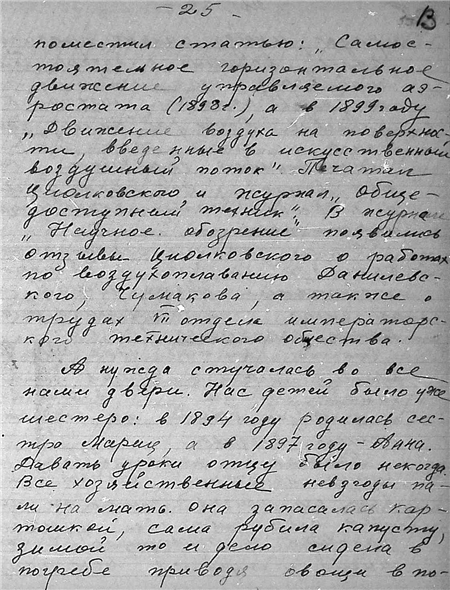 - 25 -
13
поместил статью: „Самос-
тоятельное горизонтальное
движение управляемого аэ-
ростата (1898г.), а в 1899 году
„Движение воздуха на поверхнос-
ти, введенные в искусственный
воздушный поток". Печатал
Циолковского и журнал „Обще-
доступный техник". В журнале
„Научное обозрение" появились
отзывы Циолковского о работах
по воздухоплаванию Данилевс-
кого, Чумакова, а также о
трудах VII отдела императорс-
кого технического общества.
А нужда стучалась во все
нами двери. Нас детей было уже
шестеро: в 1894 году родилась сес-
тра Мария, а в 1897 году - Анна.
Давать уроки отцу было некогда.
Все хозяйственные невзгоды па-
ли на мать. Она запасалась кар-
тошкой, сама рубила капусту,
зимой то и дело сидела в
погребе приводя овощи в по-